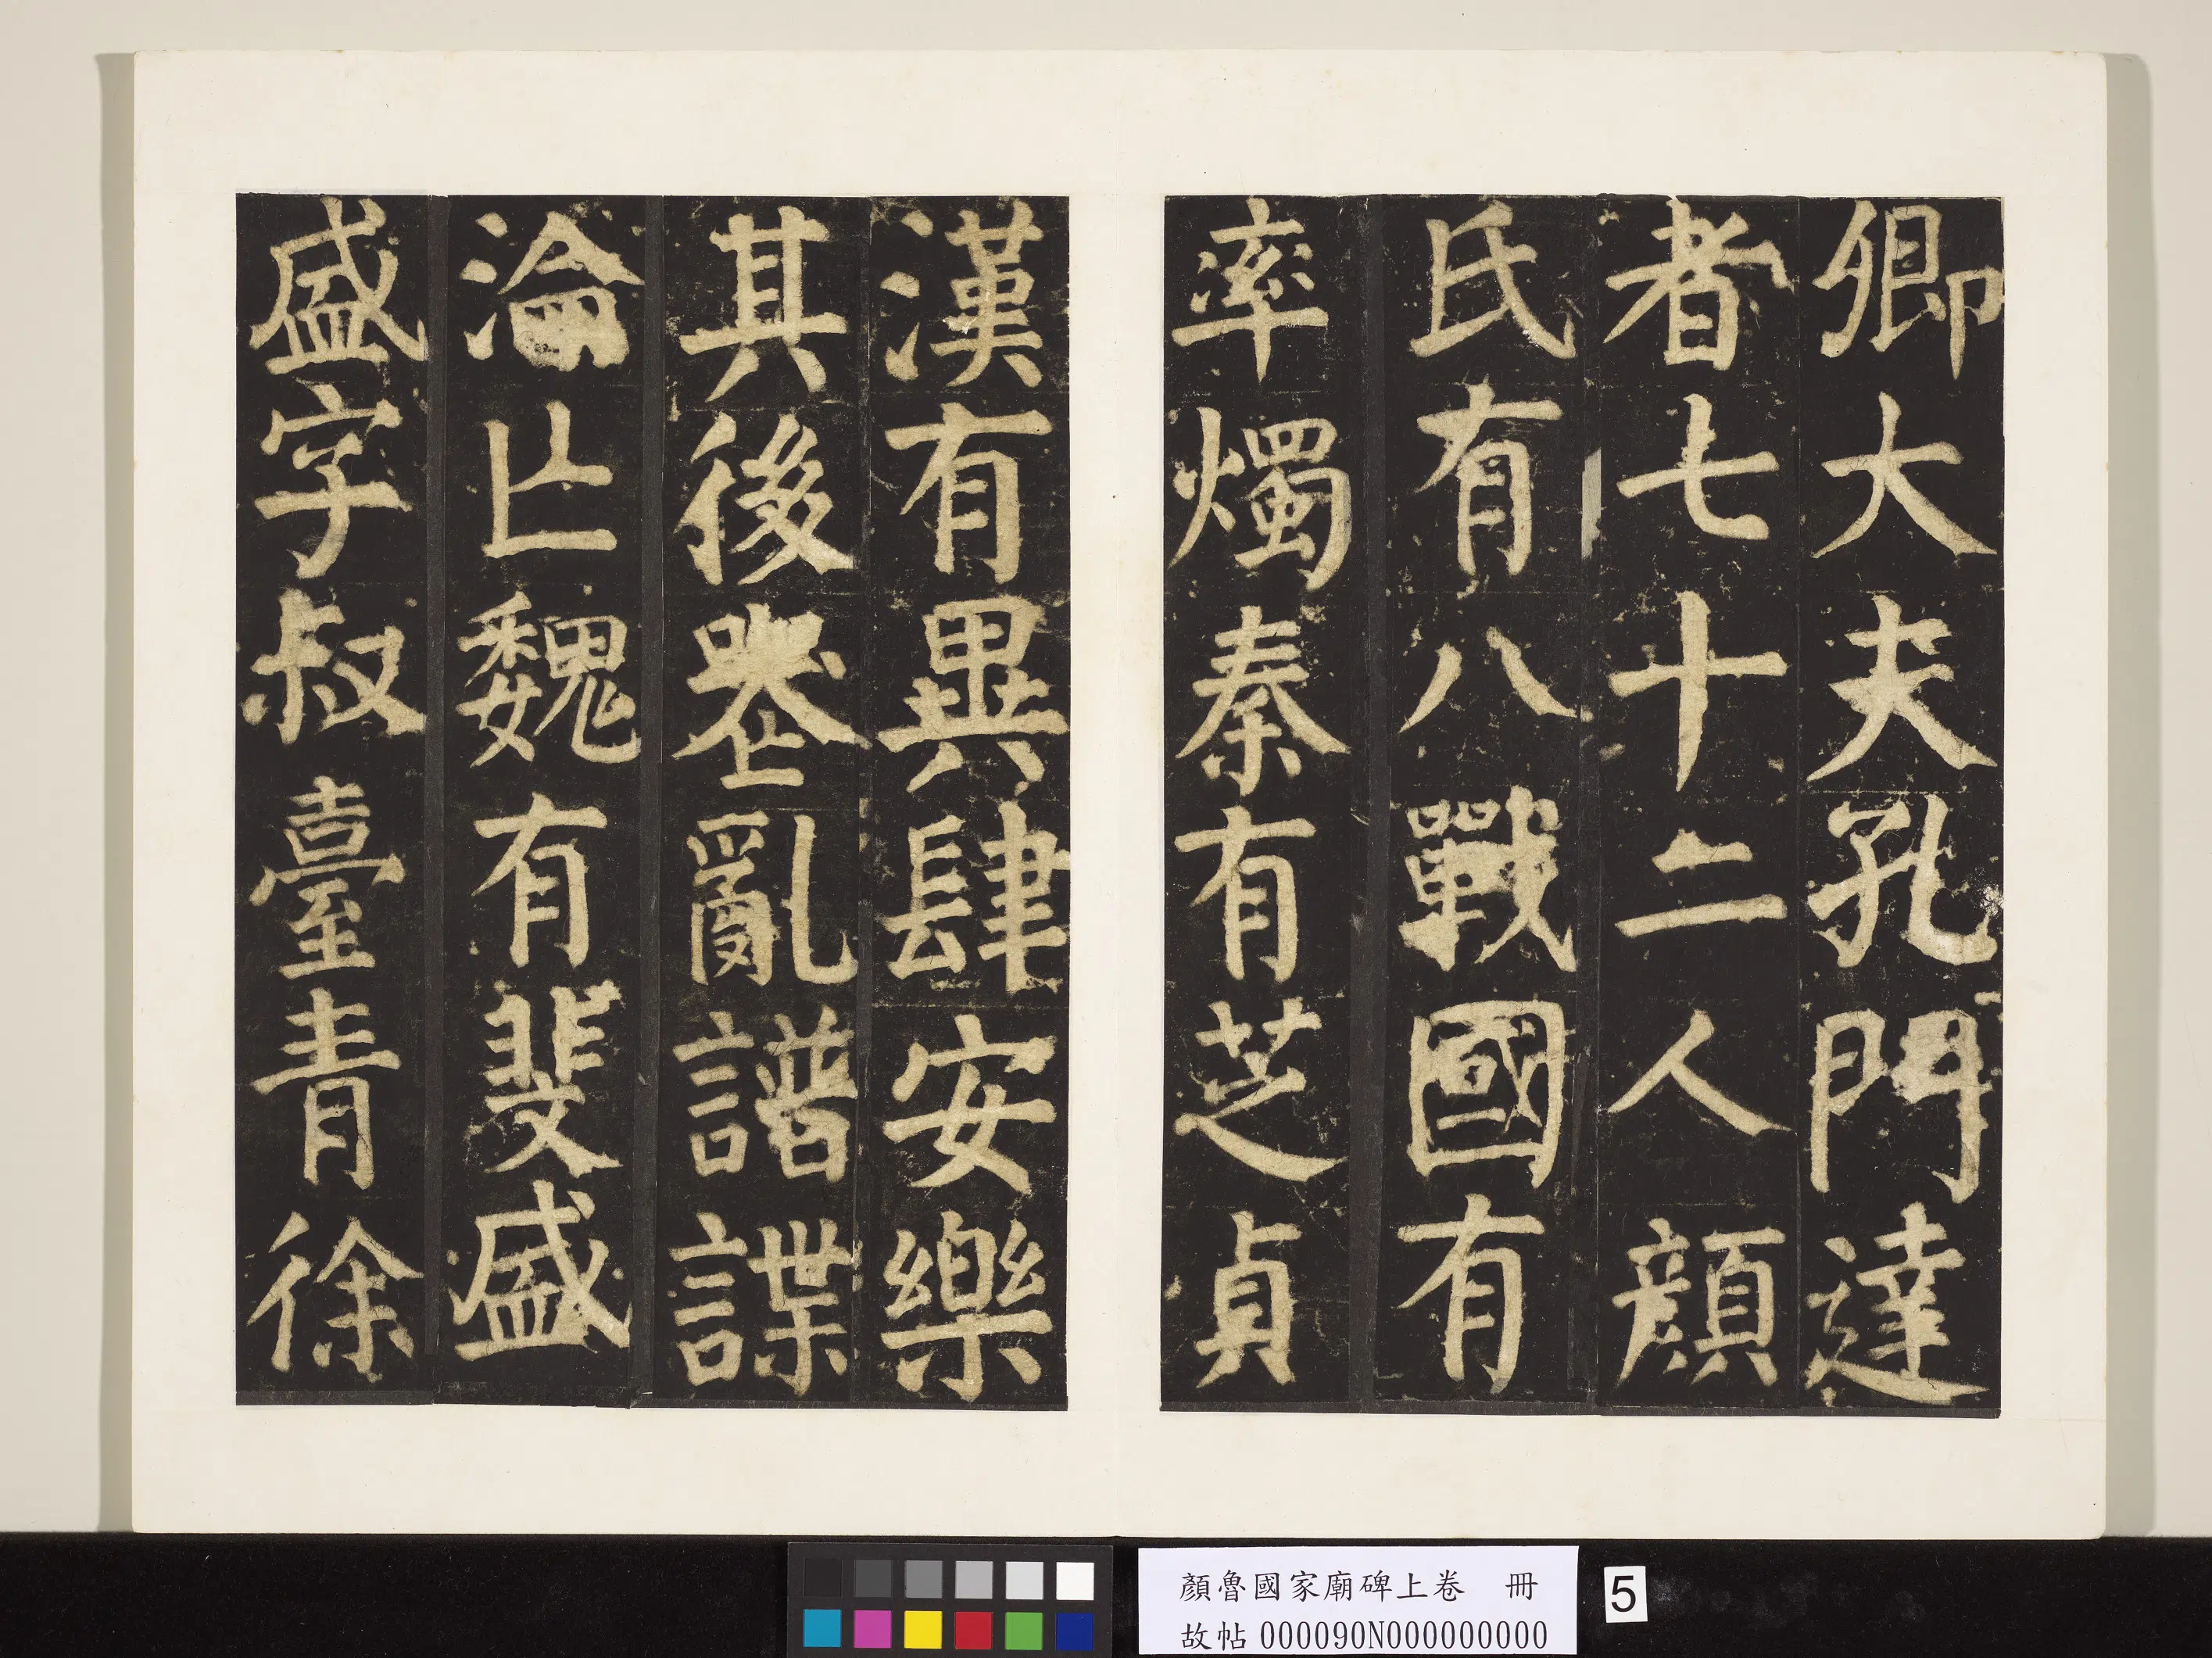 卿大夫孔門達
者七十二人顏
氏有八戰國有
率燭秦有芝貞
漢有異肆安樂
其後喪亂譜諜
淪亾魏有斐盛
盛字叔臺青徐
顏魯國家廟碑上卷 冊
故帖 000090N000000000
5